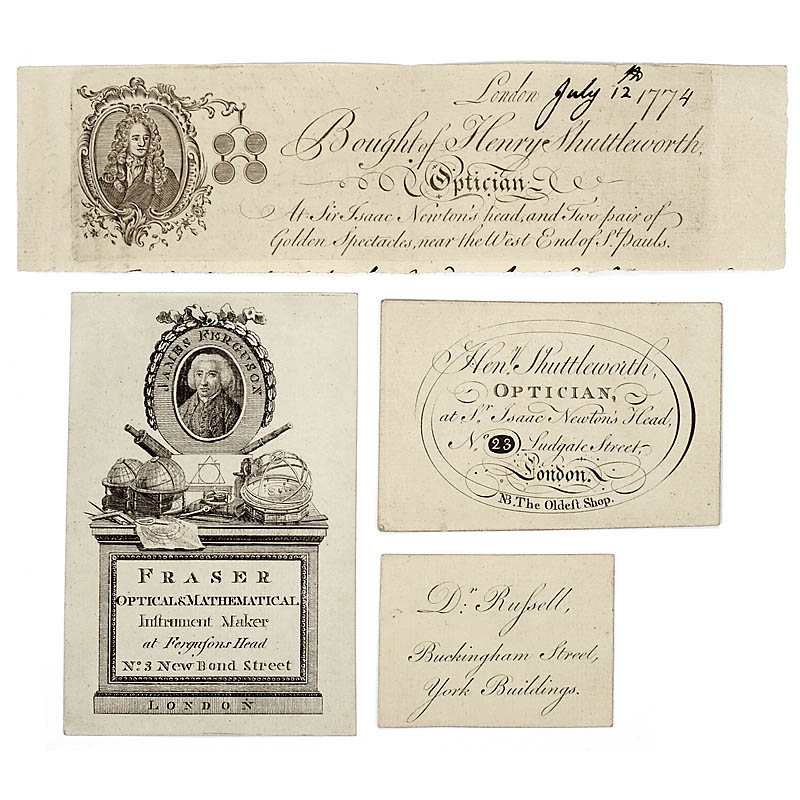 London July 12th 1774
Bought of Henry Shuttleworth,
Optician
At Sir Isaac Newton's head, and Two pair of
Golden Spectacles, near the West End of St. Pauls.
JAMES FERGUSON
FRASER
OPTICAL & MATHEMATICAL
Instrument Maker
at Fergusons Head
No. 3 New Bond Street
LONDON
Heny. Shuttleworth,
OPTICIAN,
at Sr. Isaac Newton's Head,
No. 23 Ludgate Street,
London.
NB. The Oldeſt Shop.
Dr. Ruſsell,
Buckingham Street,
York Buildings.